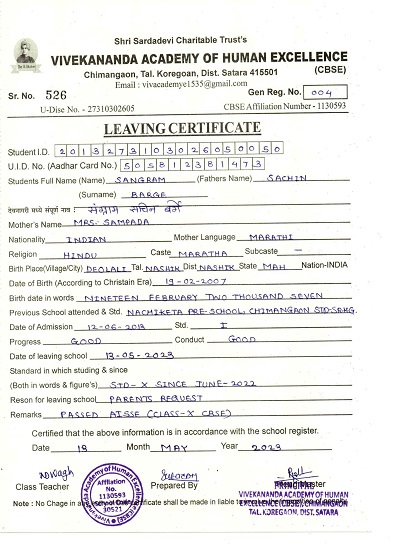 Shri Sardadevi Charitable Trust's
VIVEKANANDA ACADEMY OF HUMAN EXCELLENCE
(CBSE)
Chimangaon, Tal. Koregoan, Dist. Satara 415501
Email : vivacademye1535@gmail.com
Sr. No. 526 Gen Reg. No. 004
U-Dise No. - 27310302605 CBSE Affiliation Number - 1130593
LEAVING CERTIFICATE
Student I.D. 2013273103026050050
U.I.D. No. (Aadhar Card No.) 505812381473
Students Full Name (Name) SANGRAM (Fathers Name) SACHIN
(Surname) BARGE
देवनागरी मध्ये संपूर्ण नाव : संग्राम सचिन बर्गे
Mother's Name MRS. SAMPADA
Nationality INDIAN Mother Language MARATHI
Religion HINDU Caste MARATHA Subcaste —
Birth Place(Village/City) DEOLALI Tal. NASHIK Dist NASHIK State MAH Nation-INDIA
Date of Birth (According to Christain Era) 19-02-2007
Birth date in words NINETEEN FEBRUARY TWO THOUSAND SEVEN
Previous School attended & Std. NACHIKETA PRE-SCHOOL, CHIMANGAON STD-SR.KG.
Date of Admission 12-06-2013 Std. I
Progress GOOD Conduct GOOD
Date of leaving school 13-05-2023
Standard in which studing & since
(Both in words & figure's) STD-X SINCE JUNE-2022
Reson for leaving school PARENTS REQUEST
Remarks PASSED AISSE (CLASS-X CBSE)
Certified that the above information is in accordance with the school register.
Date 18 Month MAY Year 2023
Class Teacher Prepared By
Vivekananda Academy of Human Excellence
Affiliation
No.
1130593
School Code
30521
PRINCIPAL
VIVEKANANDA ACADEMY OF HUMAN
EXCELLENCE (CBSE), CHIMANGAON
TAL. KOREGAON, DIST. SATARA
Note : No Chage in any certificate shall be made in liable to